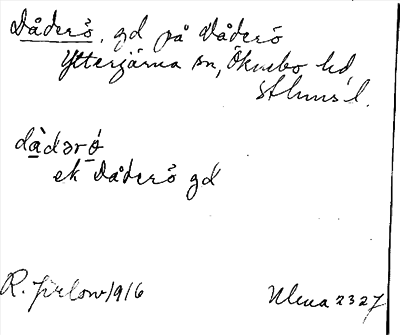 Dåderö, gd på Dåderö
Ytterjärna sn, Öknebo hd,
Sthms l.
dådərö
ek Dåderö gd
R. Jirlow 1916 Ulena 2327